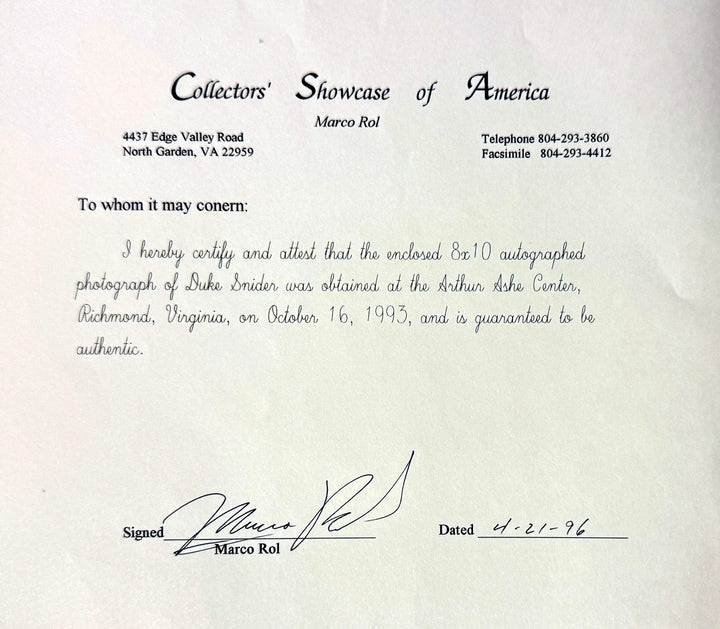 Collectors' Showcase of America
Marco Rol
4437 Edge Valley Road
North Garden, VA 22959
Telephone 804-293-3860
Facsimile 804-293-4412
To whom it may conern:
I hereby certify and attest that the enclosed 8x10 autographed
photograph of Duke Snider was obtained at the Arthur Ashe Center,
Richmond, Virginia, on October 16, 1993, and is guaranteed to be
authentic.
Signed Marco Rol
Marco Rol
Dated 4-21-96